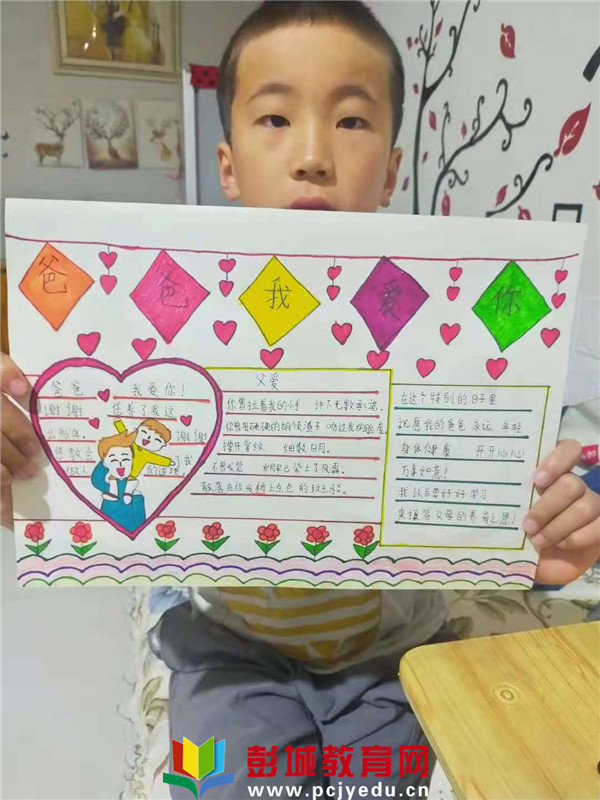 爸爸我爱你
爸爸 我爱你！
谢谢 您养了我这
么多年。 谢谢
您教会 了我
做人 的道理。
父爱
你曾拉着我的小手 许下无数承诺。
你曾用硬硬的胡须渣子 吻过我的脸
撑开掌纹 细数日月。
不曾发觉 你的鬓已染上了风霜。
在这个特别的日子里
祝愿我的爸爸永远年轻
身体健康 开开心心
万事如意！
我以后要好好学习
来报答父爱的养育之恩！
彭城教育网
www.pcjyedu.cn